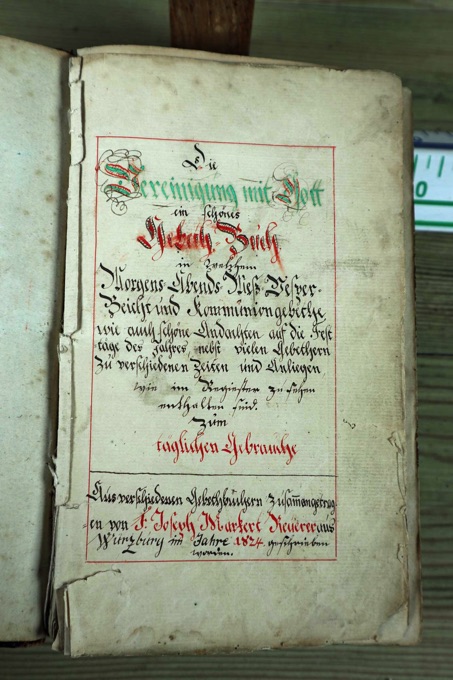 Die
Vereinigung mit Gott
ein schönes
Gebeth-Buch
in welchem
Morgens- Abends- Meß- Vesper-
Beicht und Kommuniongebethe,
wie auch schöne Andachten auf die Fest
täge des Jahres nebst vielen Gebethern
zu verschiedenen Zeiten und Anliegen
wie im Register zu sehen
enthalten sind.
Zum
täglichen Gebrauche
Aus verschiedenen Gebethbüchern zusam̄angetrag
en von F: Joseph Markert aus
Würzburg im Jahre 1824. geschrieben
worden.
0